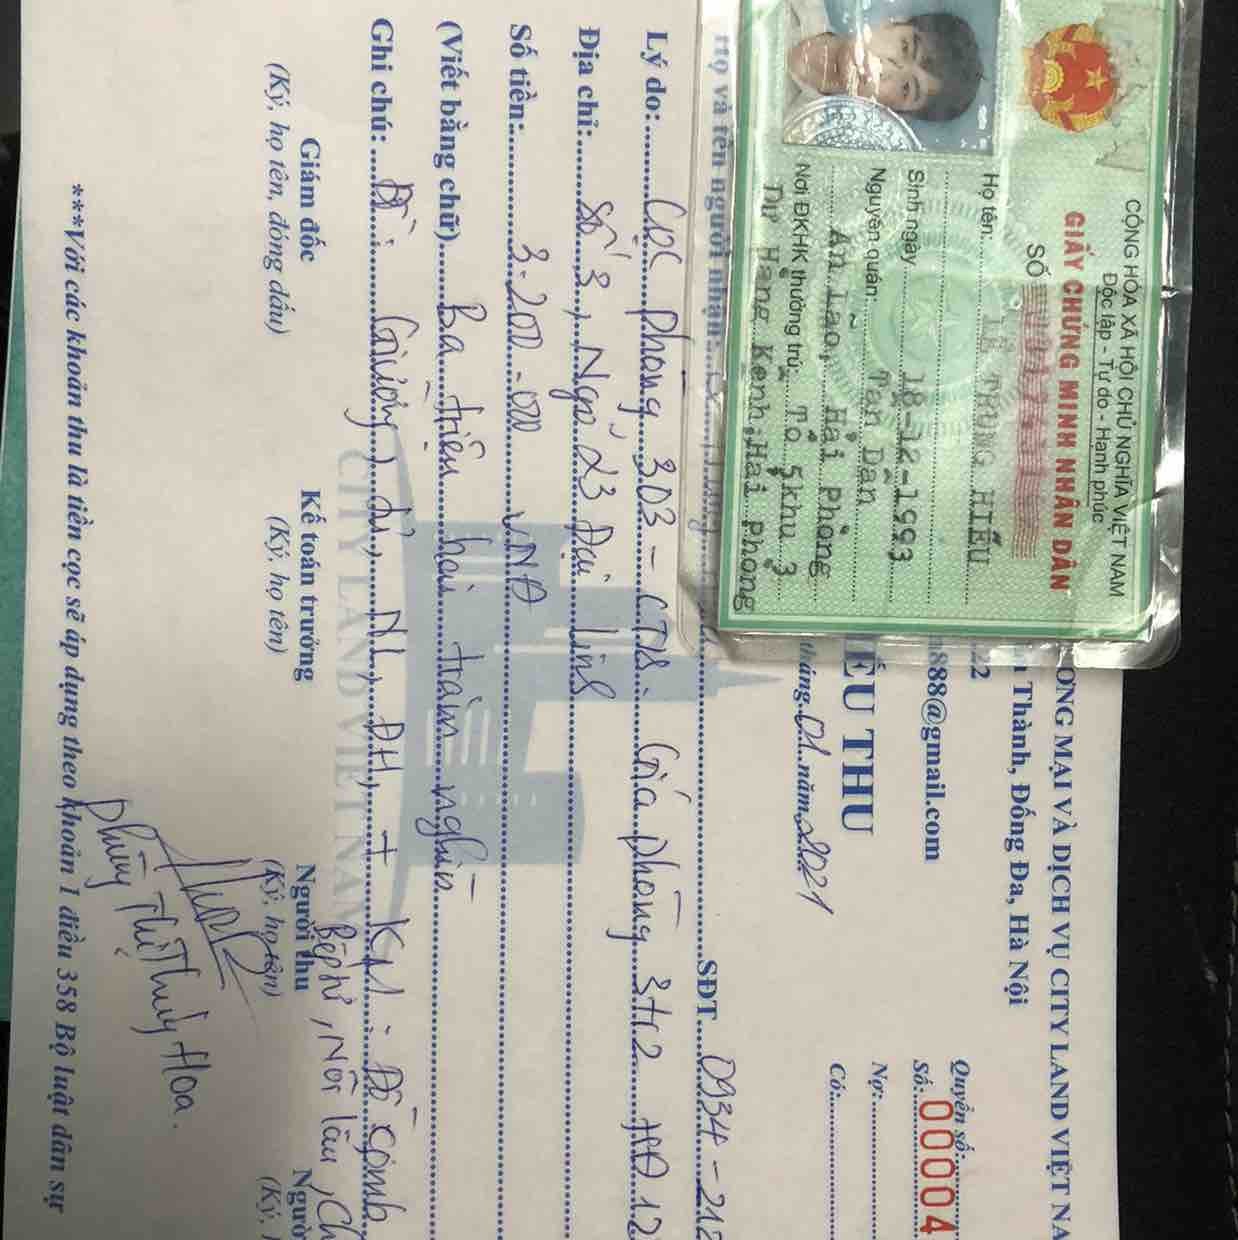 CỘNG HÒA XÃ HỘI CHỦ NGHĨA VIỆT NAM
Độc lập - Tự do - Hạnh phúc
GIẤY CHỨNG MINH NHÂN DÂN
SỐ
Họ tên: LÊ TRUNG HIẾU
Sinh ngày 18-12-1993
Nguyên quán: Tân Dân
An Lão, Hải Phòng
Nơi ĐKHK thường trú: Tổ 5khu 3
Dư Hàng Kênh,Hải Phòng
ONG MẠI VÀ DỊCH VỤ CITY LAND VIỆT NA
Thành, Đống Đa, Hà Nội
22
888@gmail.com
Quyển số:
Số: 00004
ẾU THU
Nợ:
tháng 01 năm 2021
Có:
Họ và tên người nhận:
SĐT 0934-212
Lý do: Cọc phòng 303 - CTA. Giá phòng 3tr2 HĐ 12
Địa chỉ: Số 3, Ngõ 23 Đại Linh
Số tiền: 3.200.000 VNĐ
(Viết bằng chữ) Ba triệu hai trăm nghìn
Ghi chú: Đồ: Giường, tủ, NL, ĐH, + KM: Đồ
Bếp từ, Nồi lẩu,
CITY LAND VIET NAM
Giám đốc
(Ký, họ tên, đóng dấu)
Kế toán trưởng
(Ký, họ tên)
Người thu
(Ký, họ tên)
Người
(Ký,
Phùng Thị Thúy Hoa.
***Với các khoản thu là tiền cọc sẽ áp dụng theo khoản 1 điều 358 Bộ luật dân sự